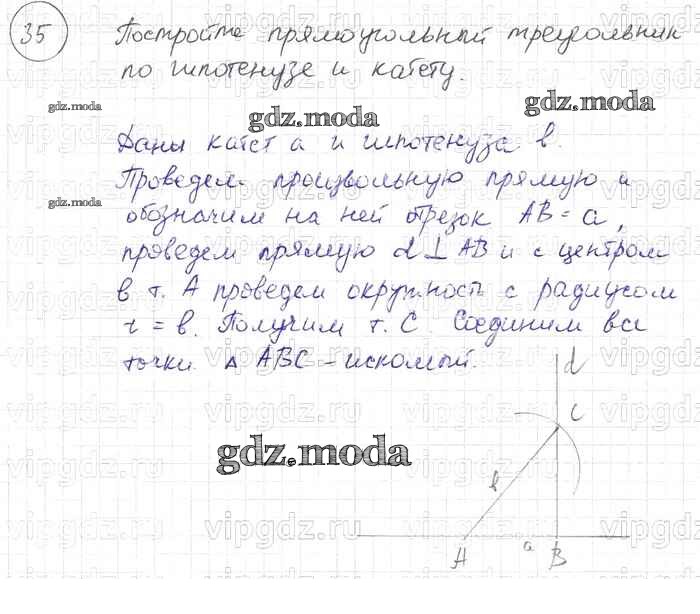 35 Постройте прямоугольный треугольник
по гипотенузе и катету.
gdz.moda
gdz.moda
gdz.moda
Даны катет a и гипотенуза b.
Проведем произвольную прямую и
gdz.moda
обозначим на ней отрезок AB = a,
проведем прямую d ⊥ AB и с центром
в т. A проведем окружность с радиусом
r = b. Получим т. C. Соединим все
точки. Δ ABC – искомый.
d
C
gdz.moda
b
A a B
vipgdz.ru